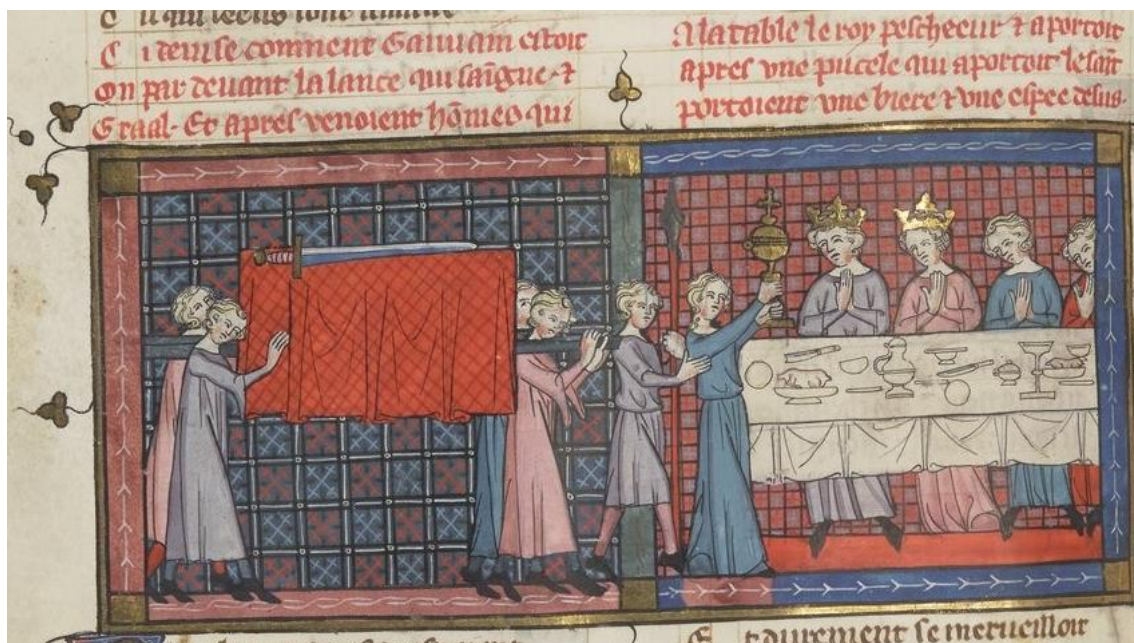 C i deuise comment Gauuain estoit
A la table le roy pescheeur ⁊ aportoit
on par deuant la lance qui saĩgne ⁊
apres vne pucele qui aportoit le saĩt
Graal. Et apres venoient hõmes qui
portoient vne biere ⁊ vne espee desus.
E t durement se merueilloit